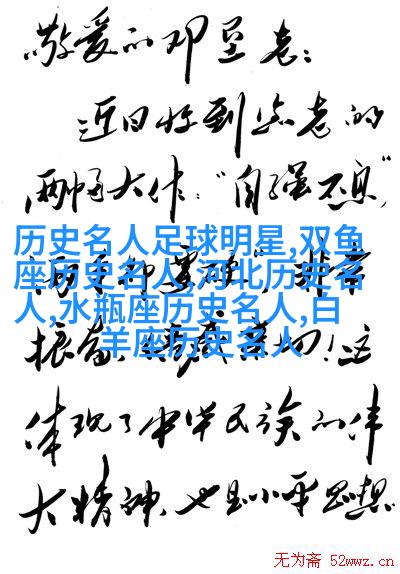 敬爱的邓垦老：
近日收到您老的
两幅大作："自强不息"
历史名人足球明星,双鱼
座历史名人,河北历史名
人,水瓶座历史名人,白
羊座历史名人
非常
振奋,感切!这
体现了中华民族的伟
大精神,也是小平思想
无为斋 52wwz.cn